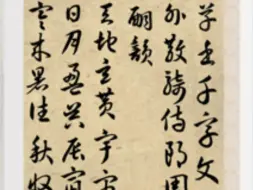 千字文
外散騎侍郎周
嗣韻
天地玄黃宇宙
日月盈昃辰宿
寒來暑往秋收